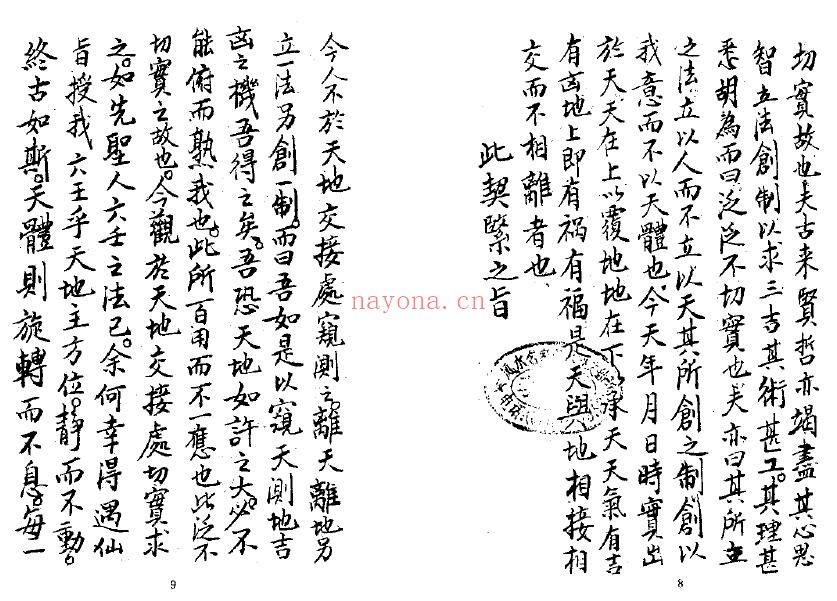 切實故也夫古来賢哲亦竭盡其心思
智立法創制以求三吉其術甚工其理甚
悉胡為而曰泛泛不切實也夫亦曰其所立
之法立以人而不立以天其所創之制創以
我意而不以天體也今天年月日時實出
於天天在上以覆地地在下承天天氣有吉
有凶地上即有祸有福是天與地相接相
交而不相離者也
此契緊之旨
8
今人不於天地交接處窺測之離天離地另
立一法另創一制而曰吾如是以窺天測地吉
凶之機吾得之矣吾恐天地如許之大必不
能俯而熟我也此所百用而不一應也此泛不
切實之故也今觀於天地交接處切實求
之如先聖人六壬之法已余何幸得遇仙
旨授我六壬乎天地主方位靜而不動
終古如斯天體則旋轉而不息每一
9
nayona.cn